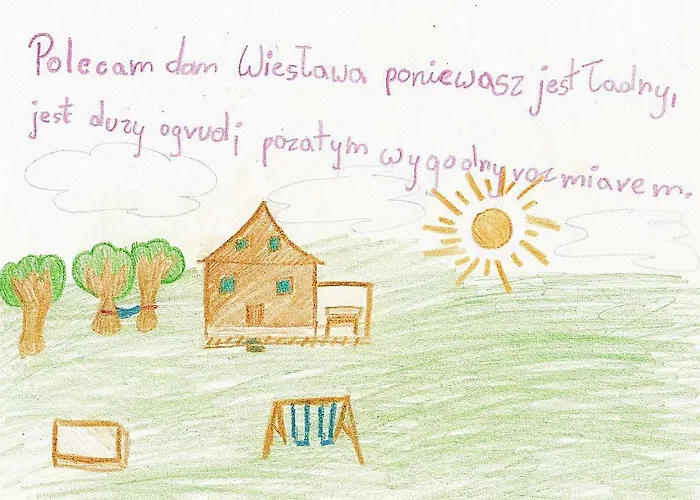 Polecam dom Wiesława poniewasz jest Ładny,
jest duzy ogrud i pozatym wygodny rozmiarem.